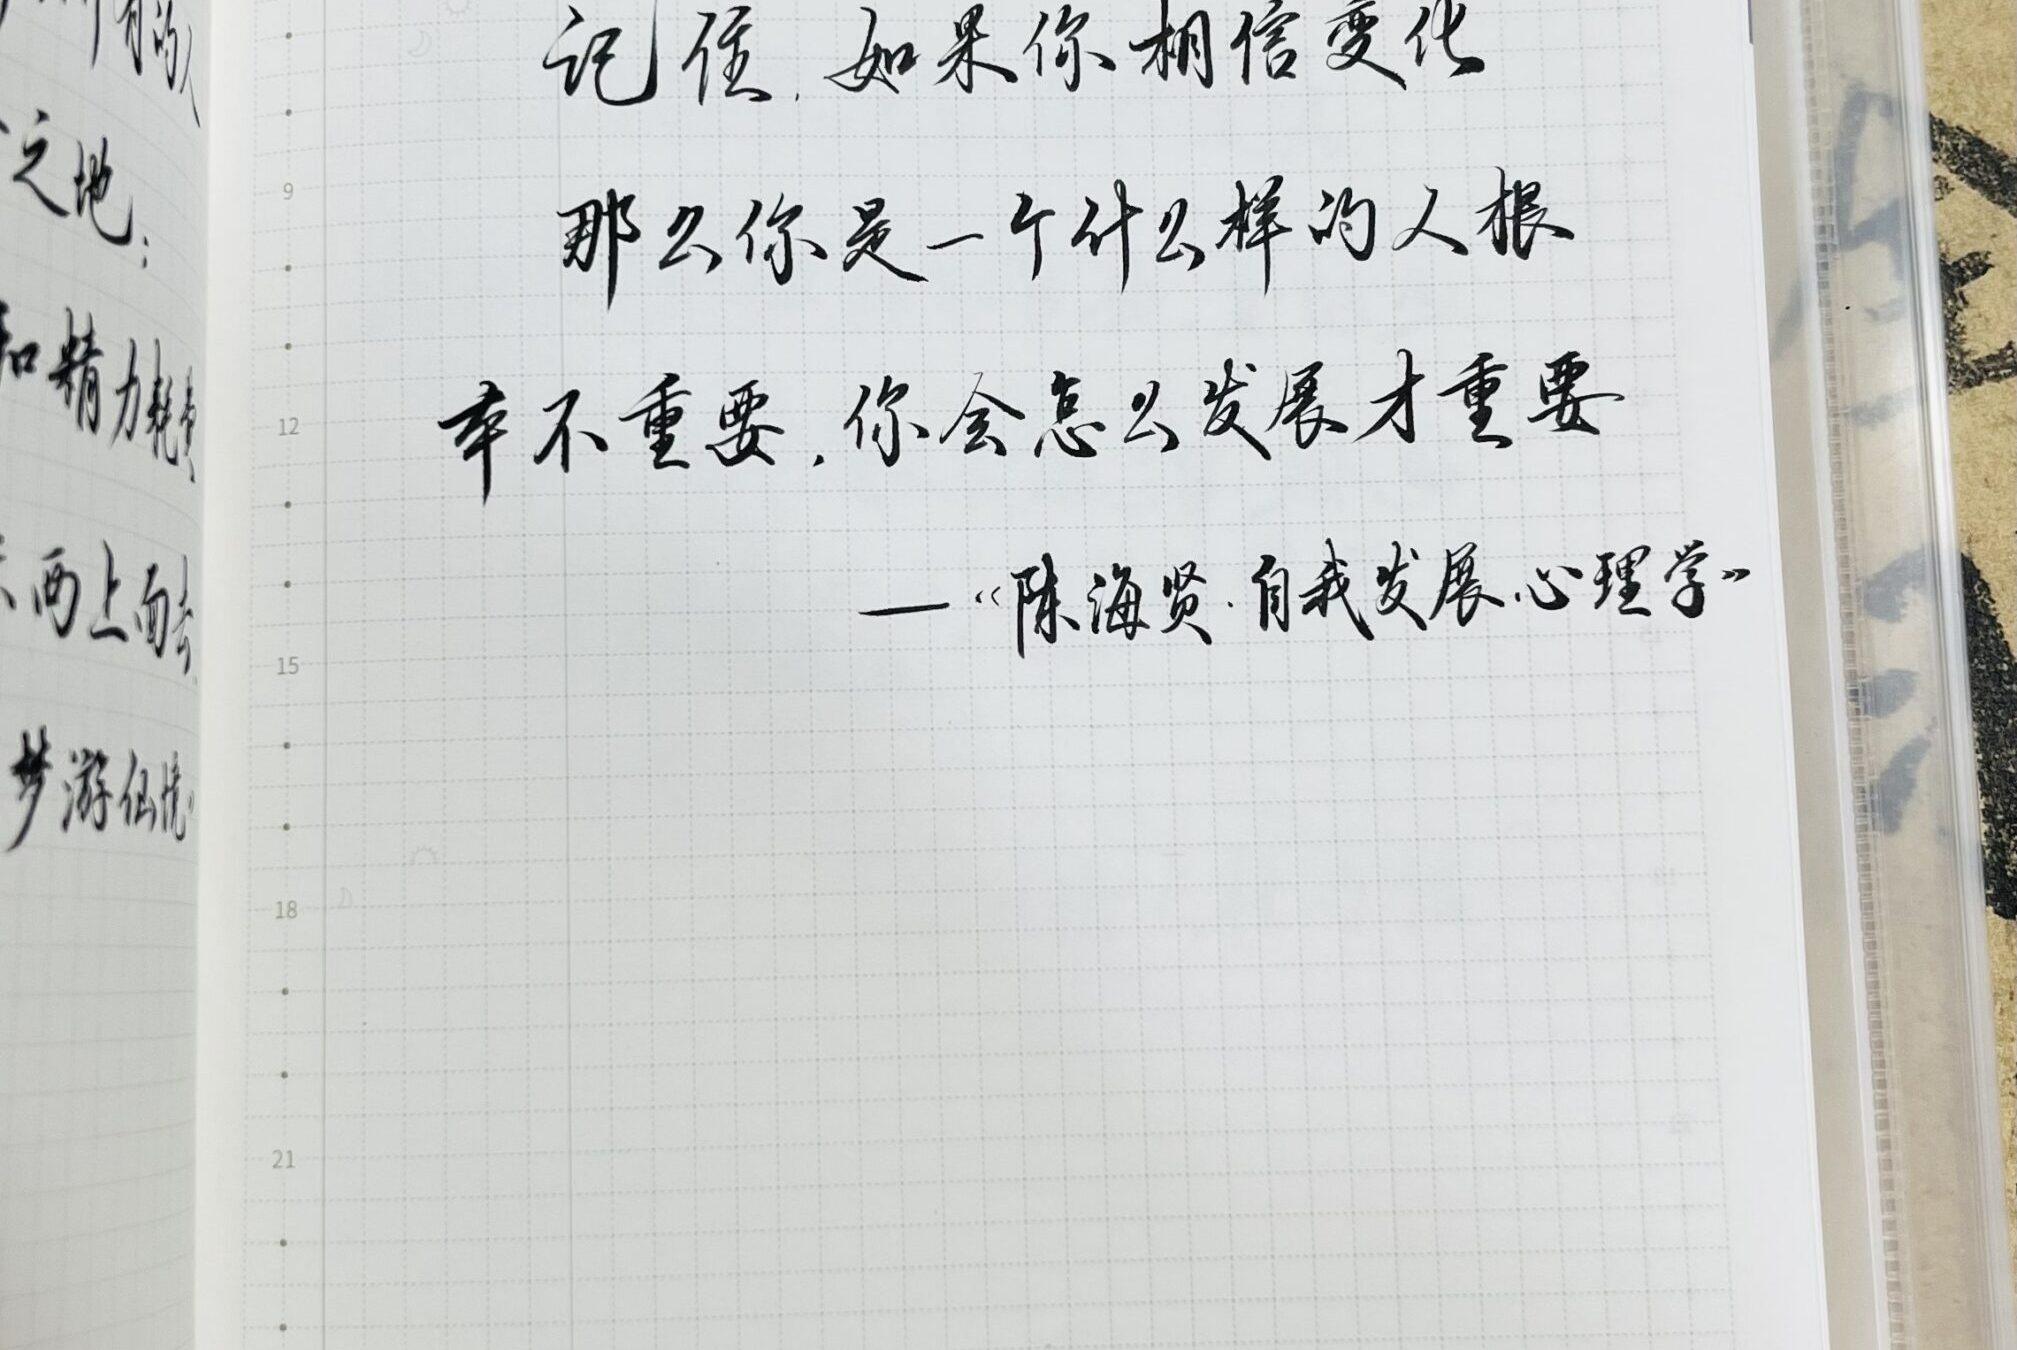 的人
之地：
和精力耗费
西上而去
梦游仙境
记住，如果你相信变化
那么你是一个什么样的人根
9
本不重要，你会怎么发展才重要
12
—“陈海贤·自我发展心理学”
15
18
21